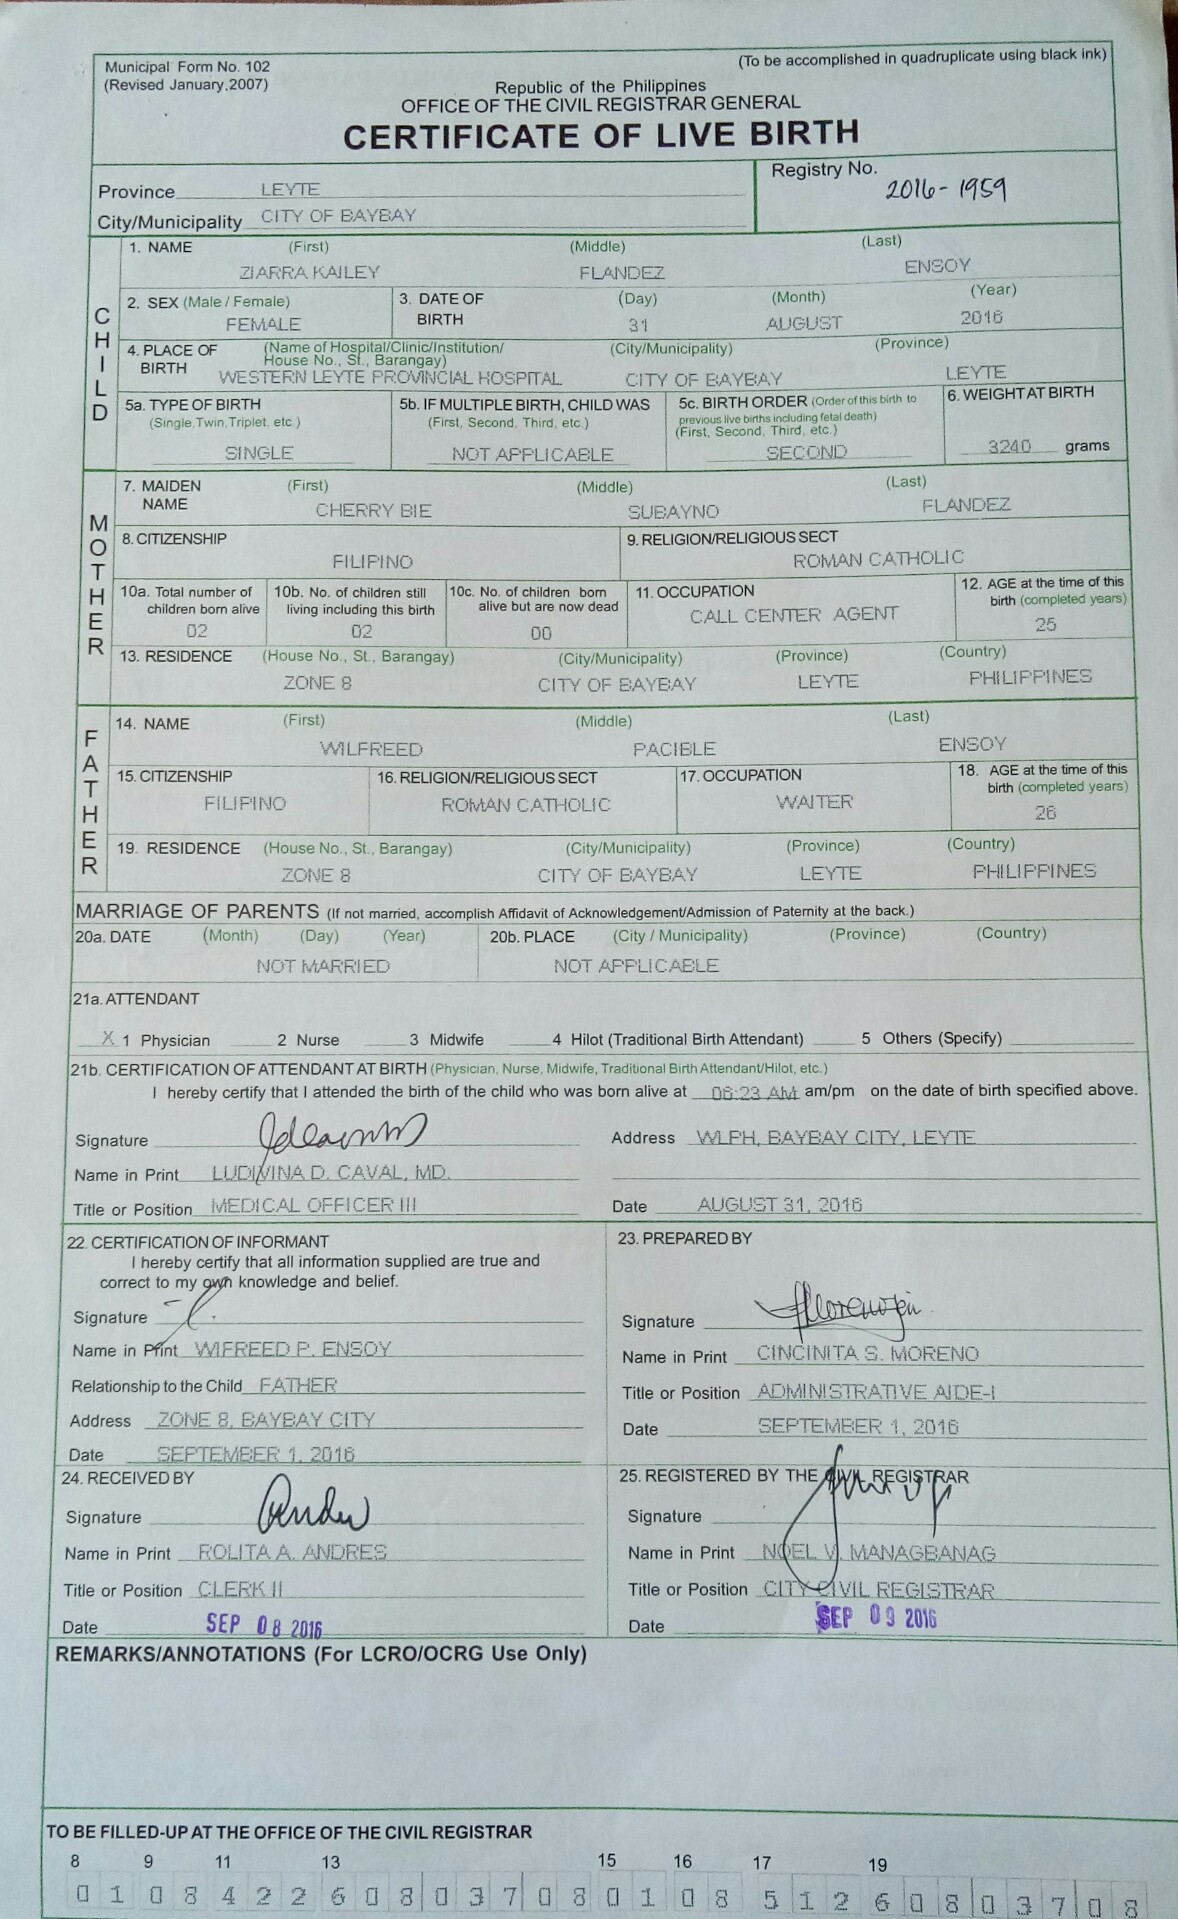 Municipal Form No. 102 (To be accomplished in quadruplicate using black ink)
(Revised January,2007) Republic of the Philippines
OFFICE OF THE CIVIL REGISTRAR GENERAL
CERTIFICATE OF LIVE BIRTH
Province LEYTE Registry No. 2016-1959
City/Municipality CITY OF BAYBAY
CHILD
1. NAME (First) (Middle) (Last)
ZIARRA KAILEY FLANDEZ ENSOY
2. SEX (Male / Female) 3. DATE OF BIRTH (Day) (Month) (Year)
FEMALE 31 AUGUST 2016
4. PLACE OF BIRTH (Name of Hospital/Clinic/Institution/ House No., St., Barangay) (City/Municipality) (Province)
WESTERN LEYTE PROVINCIAL HOSPITAL CITY OF BAYBAY LEYTE
5a. TYPE OF BIRTH (Single,Twin,Triplet, etc.) 5b. IF MULTIPLE BIRTH, CHILD WAS (First, Second, Third, etc.) 5c. BIRTH ORDER (Order of this birth to previous live births including fetal death) (First, Second, Third, etc.) 6. WEIGHT AT BIRTH
SINGLE NOT APPLICABLE SECOND 3240 grams
MOTHER
7. MAIDEN NAME (First) (Middle) (Last)
CHERRY BIE SUBAYNO FLANDEZ
8. CITIZENSHIP 9. RELIGION/RELIGIOUS SECT
FILIPINO ROMAN CATHOLIC
10a. Total number of children born alive 10b. No. of children still living including this birth 10c. No. of children born alive but are now dead 11. OCCUPATION 12. AGE at the time of this birth (completed years)
02 02 00 CALL CENTER AGENT 25
13. RESIDENCE (House No., St., Barangay) (City/Municipality) (Province) (Country)
ZONE 8 CITY OF BAYBAY LEYTE PHILIPPINES
FATHER
14. NAME (First) (Middle) (Last)
WILFREED PACIBLE ENSOY
15. CITIZENSHIP 16. RELIGION/RELIGIOUS SECT 17. OCCUPATION 18. AGE at the time of this birth (completed years)
FILIPINO ROMAN CATHOLIC WAITER 26
19. RESIDENCE (House No., St., Barangay) (City/Municipality) (Province) (Country)
ZONE 8 CITY OF BAYBAY LEYTE PHILIPPINES
MARRIAGE OF PARENTS (If not married, accomplish Affidavit of Acknowledgement/Admission of Paternity at the back.)
20a. DATE (Month) (Day) (Year) 20b. PLACE (City / Municipality) (Province) (Country)
NOT MARRIED NOT APPLICABLE
21a. ATTENDANT
X 1 Physician 2 Nurse 3 Midwife 4 Hilot (Traditional Birth Attendant) 5 Others (Specify)
21b. CERTIFICATION OF ATTENDANT AT BIRTH (Physician, Nurse, Midwife, Traditional Birth Attendant/Hilot, etc.)
I hereby certify that I attended the birth of the child who was born alive at 06:23 AM am/pm on the date of birth specified above.
Signature Address WLPH, BAYBAY CITY, LEYTE
Name in Print LUDIVINA D. CAVAL, MD.
Title or Position MEDICAL OFFICER III Date AUGUST 31, 2016
22. CERTIFICATION OF INFORMANT
I hereby certify that all information supplied are true and
correct to my own knowledge and belief.
Signature
Name in Print WIFREED P. ENSOY
Relationship to the Child FATHER
Address ZONE 8, BAYBAY CITY
Date SEPTEMBER 1, 2016
23. PREPARED BY
Signature
Name in Print CINCINITA S. MORENO
Title or Position ADMINISTRATIVE AIDE-I
Date SEPTEMBER 1, 2016
24. RECEIVED BY
Signature
Name in Print ROLITA A. ANDRES
Title or Position CLERK II
Date SEP 08 2016
25. REGISTERED BY THE CIVIL REGISTRAR
Signature
Name in Print NOEL V. MANAGBANAG
Title or Position CITY CIVIL REGISTRAR
Date SEP 09 2016
REMARKS/ANNOTATIONS (For LCRO/OCRG Use Only)
TO BE FILLED-UP AT THE OFFICE OF THE CIVIL REGISTRAR
8 9 11 13 15 16 17 19
0 1 0 8 4 2 2 6 0 8 0 3 7 0 8 0 1 0 8 5 1 2 6 0 8 0 3 7 0 8